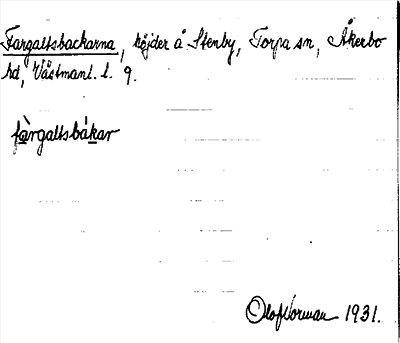 Fargaltsbackarna, höjder å Stenby, Torpa sn, Åkerbo
hd, Västmanl. l. 9.
fàrgaltsbákar
Olof Norman 1931.